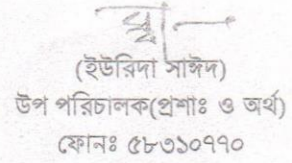 (ইউরিদা সাঈদ)
উপ পরিচালক(প্রশাঃ ও অর্থ)
ফোনঃ ৫৮৩১০৭৭০